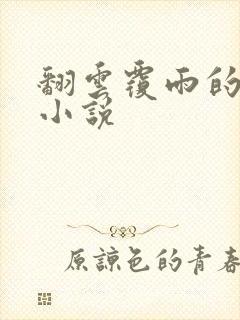 翻雲覆雨的
小說
原諒色的青春